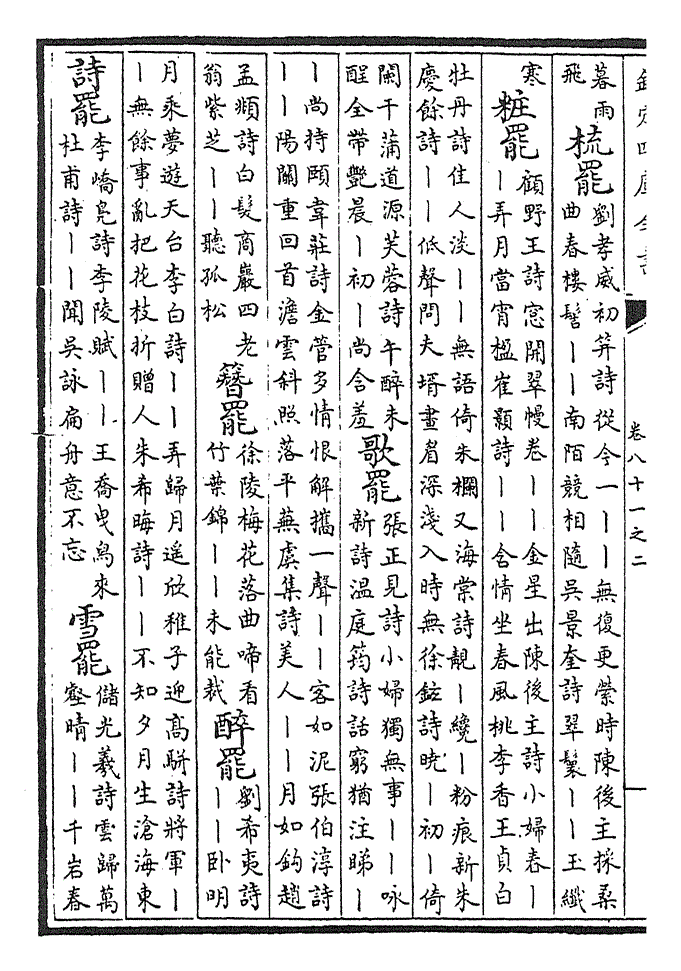 欽定四庫全書
卷八十一之二
暮雨
飛
梳罷
劉孝威初笄詩從今一丨丨無復更縈時陳後主採桑
曲春樓髻丨丨南陌競相隨吳景奎詩翠鬟丨丨玉纖
寒
粧罷
顧野王詩窓開翠幔卷丨丨金星出陳後主詩小婦春丨
丨弄月當宵楹崔顥詩丨丨含情坐春風桃李香王貞白
牡丹詩佳人淡丨丨無語倚朱欄又海棠詩靚丨纔丨粉痕新朱
慶餘詩丨丨低聲問夫壻畫眉深淺入時無徐鉉詩曉丨初丨倚
闌干蒲道源芙蓉詩午醉未
酲全帶艷晨丨初丨尚含羞
歌罷
張正見詩小婦獨無事丨丨咏
新詩温庭筠詩話窮猶注睇丨
丨尚持頤韋莊詩金管多情恨解攜一聲丨丨客如泥張伯淳詩
丨丨陽關重回首澹雲斜照落平蕪虞集詩美人丨丨月如鈎趙
孟頫詩白髮商巖四老
翁紫芝丨丨聽孤松
簪罷
徐陵梅花落曲啼看
竹葉錦丨丨未能裁
醉罷
劉希夷詩
丨丨卧明
月乘夢遊天台李白詩丨丨弄歸月遥欣稚子迎高駢詩將軍丨
丨無餘事亂把花枝折贈人朱希晦詩丨丨不知夕月生滄海東
詩罷
李嶠鳧詩李陵賦丨丨王喬曳舄來
杜甫詩丨丨聞吳詠扁舟意不忘
雪罷
儲光羲詩雲歸萬
壑晴丨丨千岩春